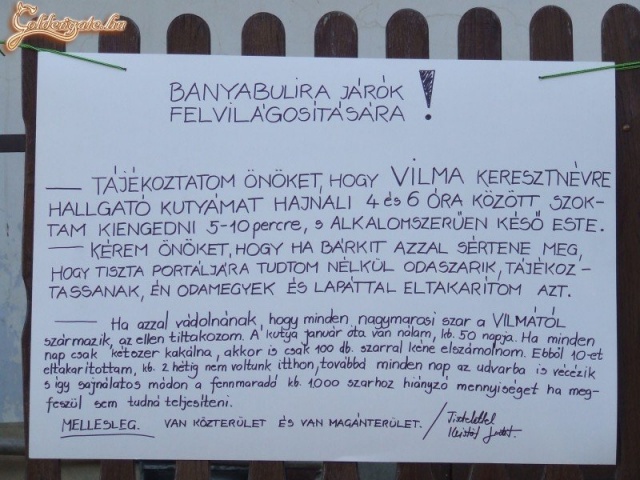 Goldengate.hu
BANYABULIRA JÁRÓK
FELVILÁGOSÍTÁSÁRA !
— TÁJÉKOZTATOM ÖNÖKET, HOGY VILMA KERESZTNÉVRE
HALLGATÓ KUTYÁMAT HAJNALI 4 és 6 ÓRA KÖZÖTT SZOK-
TAM KIENGEDNI 5-10 percre, s ALKALOMSZERŰEN KÉSŐ ESTE.
— KÉREM ÖNÖKET, HOGY HA BÁRKIT AZZAL SÉRTENE MEG,
HOGY TISZTA PORTÁLJÁRA TUDTOM NÉLKÜL ODASZARIK, TÁJÉKOZ-
TASSANAK, ÉN ODAMEGYEK ÉS LAPÁTTAL ELTAKARÍTOM AZT.
— Ha azzal vádolnának, hogy minden nagymarosi szar a VILMÁTÓL
származik, az ellen tiltakozom. A kutya január óta van nálam, kb. 50 napja. Ha minden
nap csak kétszer kakálna, akkor is csak 100 db. szarral kéne elszámolnom. Ebből 10-et
eltakarítottam, kb. 2 hétig nem voltunk itthon, továbbá minden nap az udvarba is vécézik
s így sajnálatos módon a fennmaradó kb. 1000 szarhoz hiányzó mennyiséget ha meg-
feszül sem tudná teljesíteni.
MELLESLEG. VAN KÖZTERÜLET ÉS VAN MAGÁNTERÜLET. / Tisztelettel
Kristóf